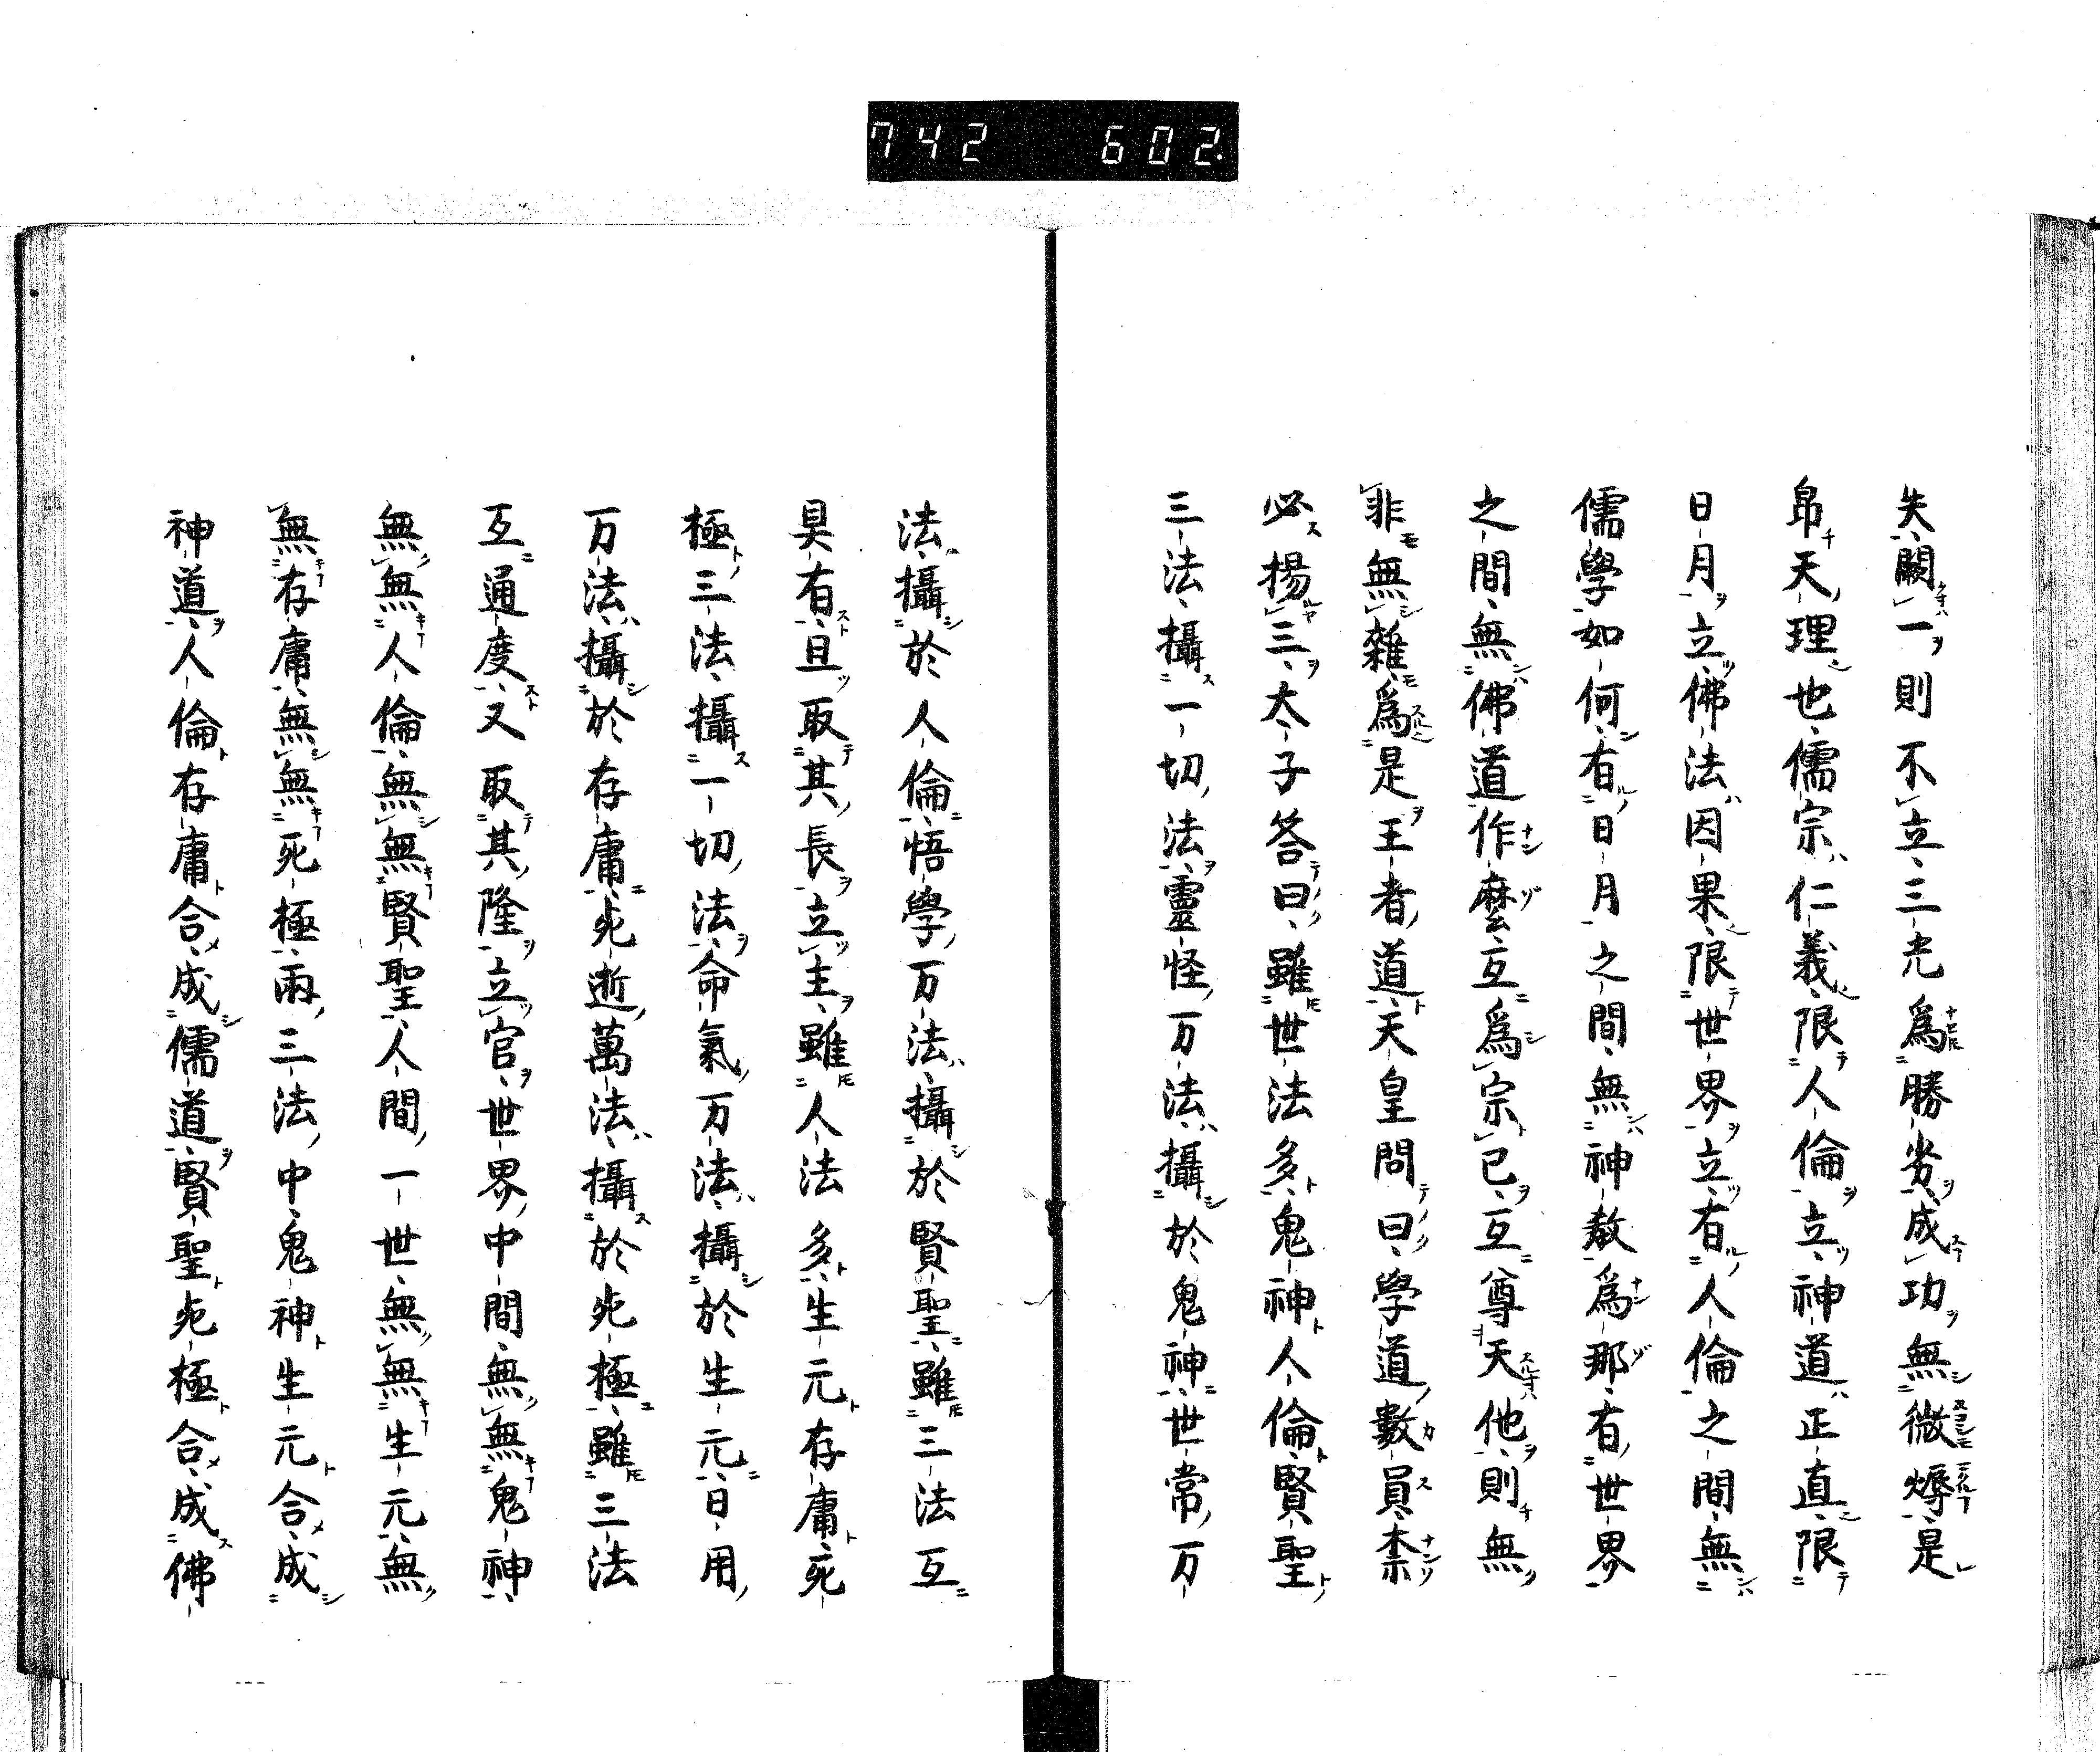 742 602.
失闕一則不立三光爲勝劣成功無微燸是
帛天理也儒宗仁義限人倫立神道正直限
日月立佛法因果限世界立有人倫之間無
儒學如何有日月之間無神敎爲那有世界
之間無佛道作麼立互爲宗已互尊天他則無
非無雜爲是王者道天皇問曰學道數員柰
必揚三太子答曰雖世法多鬼神人倫賢聖
三法攝一切法靈怪万法攝於鬼神世常万
法攝於人倫悟學万法攝於賢聖雖三法互
具有且取其長立主雖人法多生元存庸死
極三法攝一切法命氣万法攝於生元日用
万法攝於存庸死逝萬法攝於死極雖三法
互通度又取其隆立官世界中間無無鬼神
無無人倫無無賢聖人間一世無無生元無
無存庸無無死極兩三法中鬼神生元合成
神道人倫存庸合成儒道賢聖死極合成佛